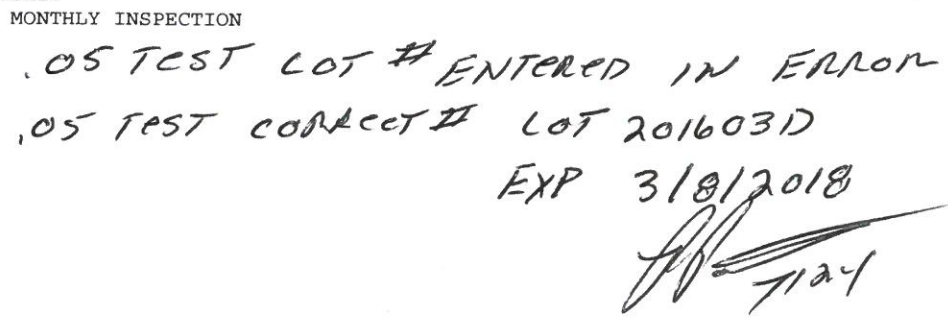 MONTHLY INSPECTION
.05 TEST LOT # ENTERED IN ERROR
.05 TEST CORRECT # LOT 201603D
EXP 3/8/2018
7124